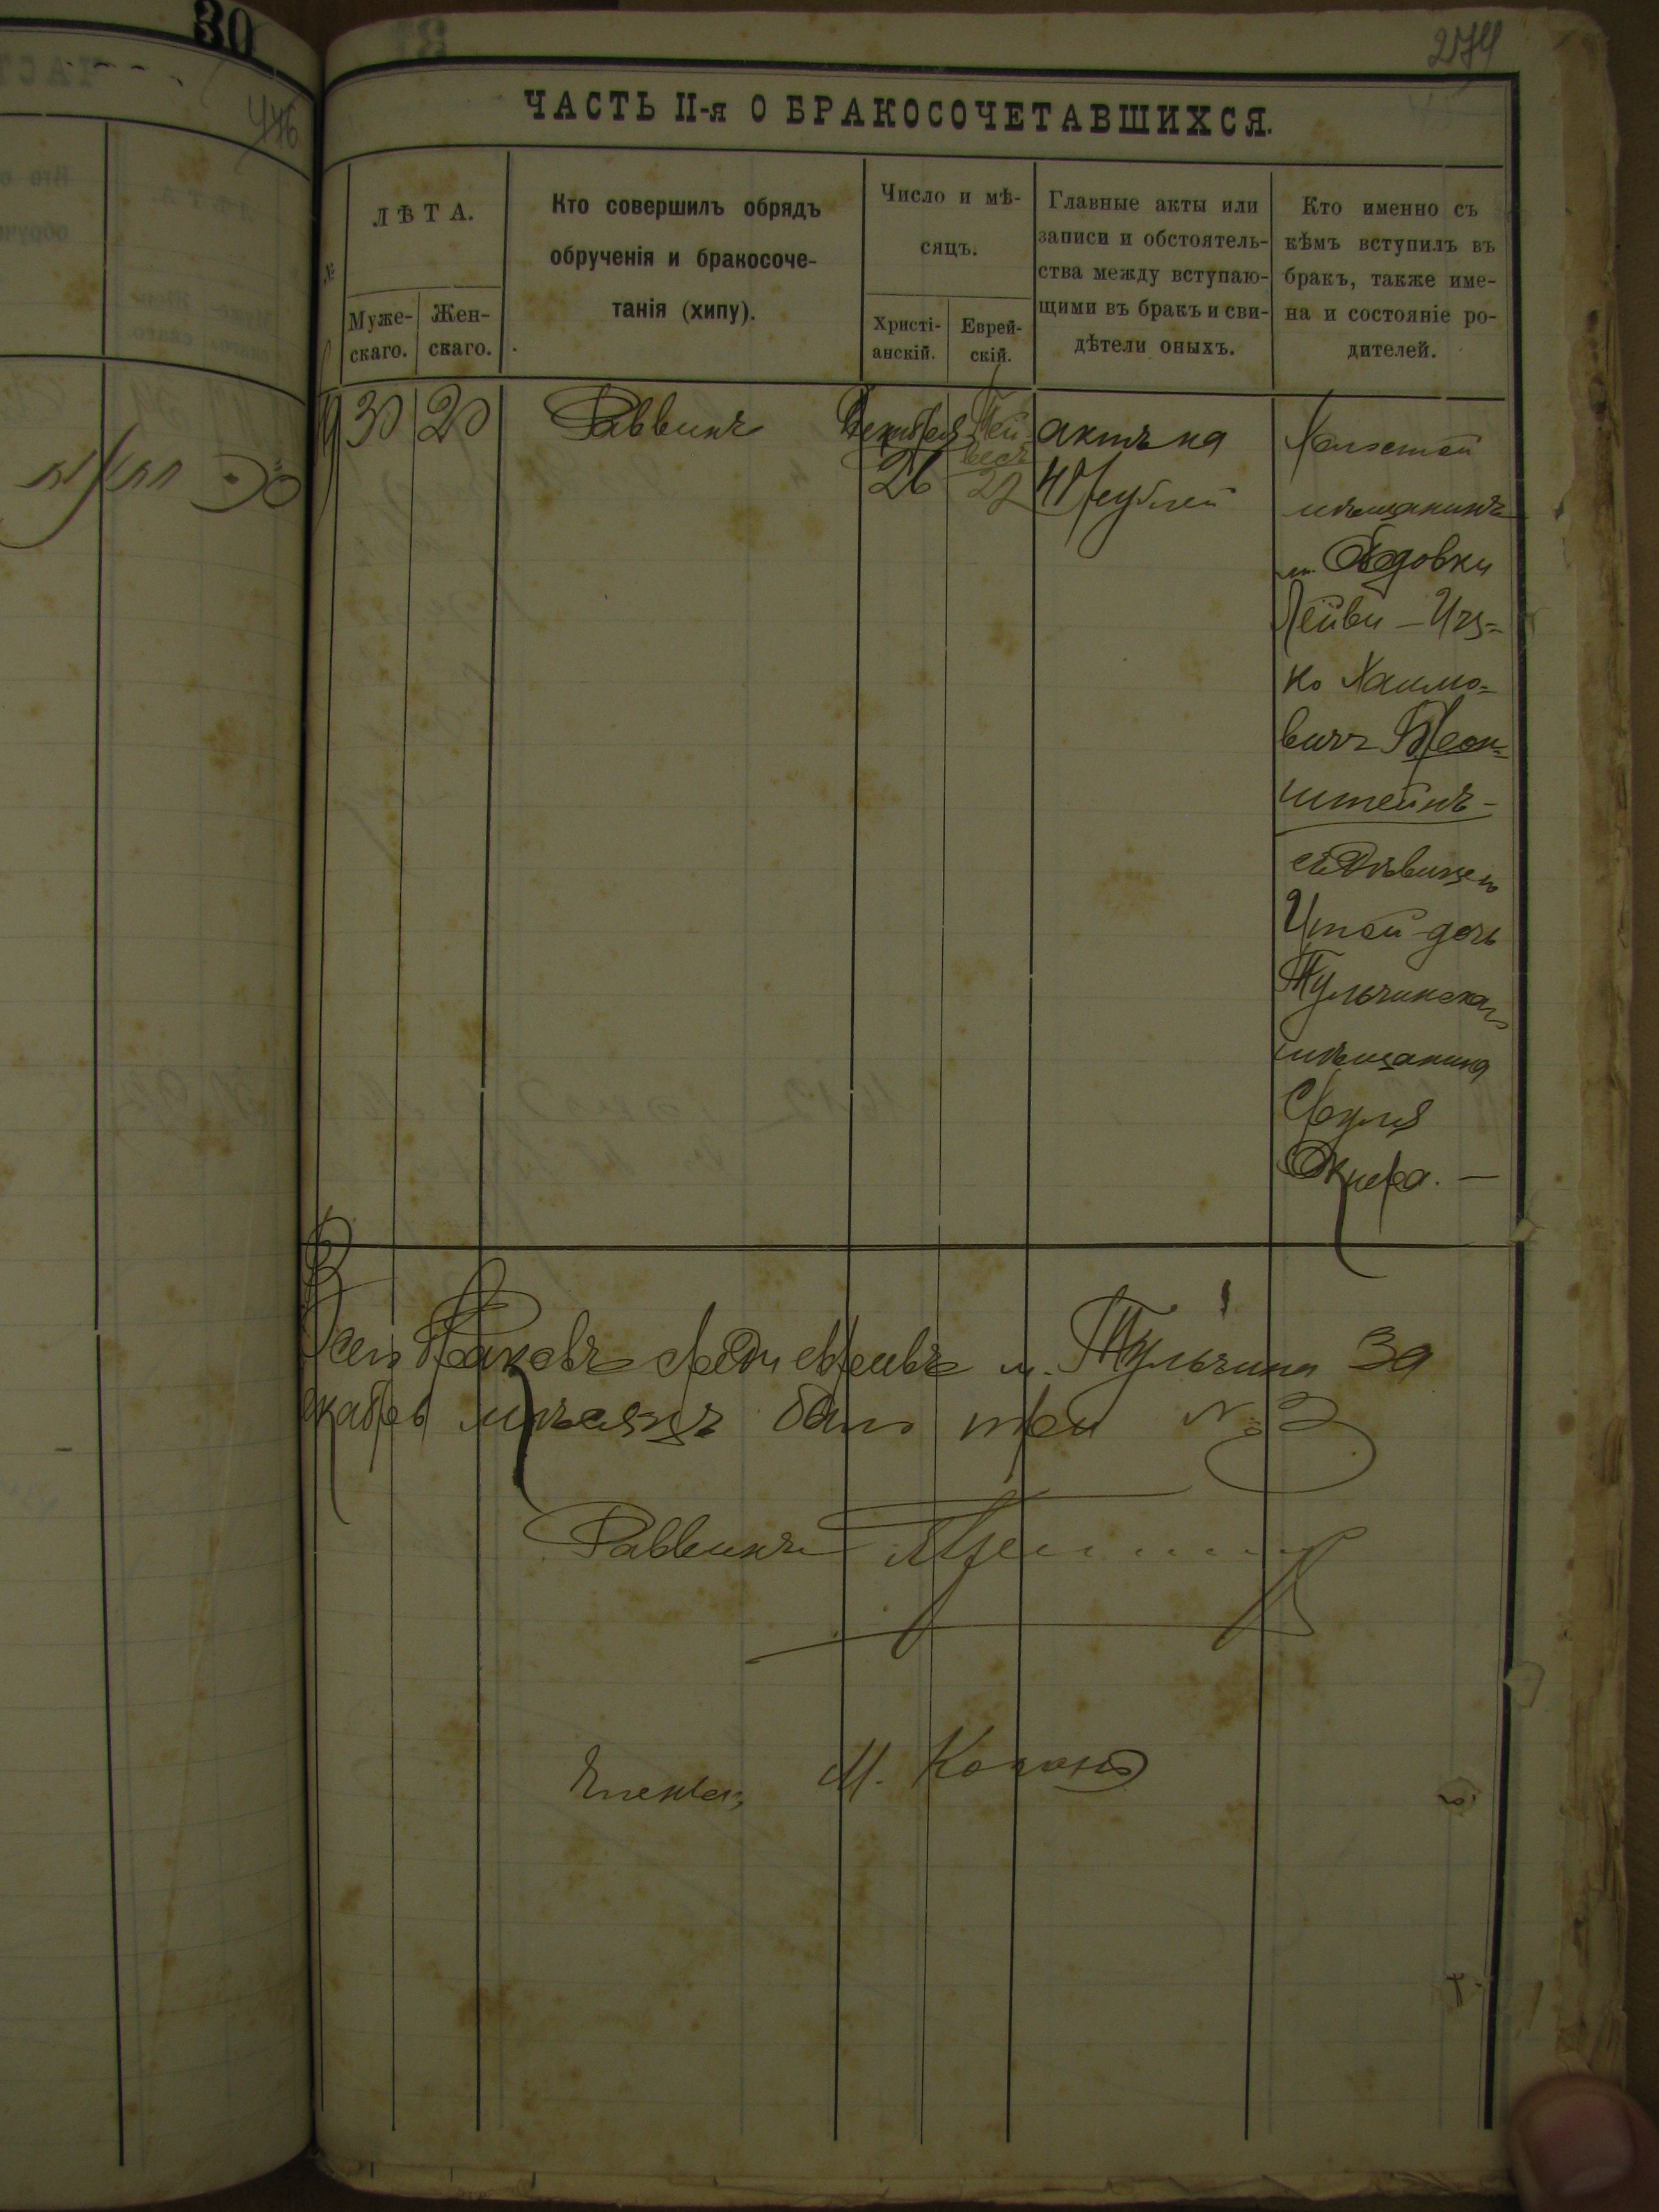 30
446
274
ЧАСТЬ II-я О БРАКОСОЧЕТАВШИХСЯ.
№
ЛѢТА.
Муже-
скаго.
Жен-
скаго.
Кто совершилъ обрядъ
обрученія и бракосоче-
танія (хипу).
Число и мѣ-
сяцъ.
Христі-
анскій.
Еврей-
скій.
Главные акты или
записи и обстоятель-
ства между вступаю-
щими въ бракъ и сви-
дѣтели оныхъ.
Кто именно съ
кѣмъ вступилъ въ
бракъ, также име-
на и состояніе ро-
дителей.
30
20
Раввинъ
Декабря
26
Тей-
весъ
27
актъ на
рублей
Холостой
мѣщанинъ
м.
Лейви-Иц-
ко Хаимо-
вичъ Брон-
штейнъ-
съ Дѣвицею
Итой дочь
Тульчинскаго
мѣщанина
Сруля
Окнера. —
Всего браковъ среди евреевъ м. Тульчина за
декабрь мѣсяцъ было три № 3
Раввинъ
М. Коганъ